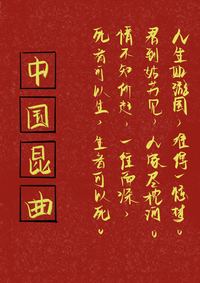 人生游园，难得一惊梦。
君到姑苏见，人家尽枕河。
情不知所起，一往而深，
死者可以生，生者可以死。
中国昆曲